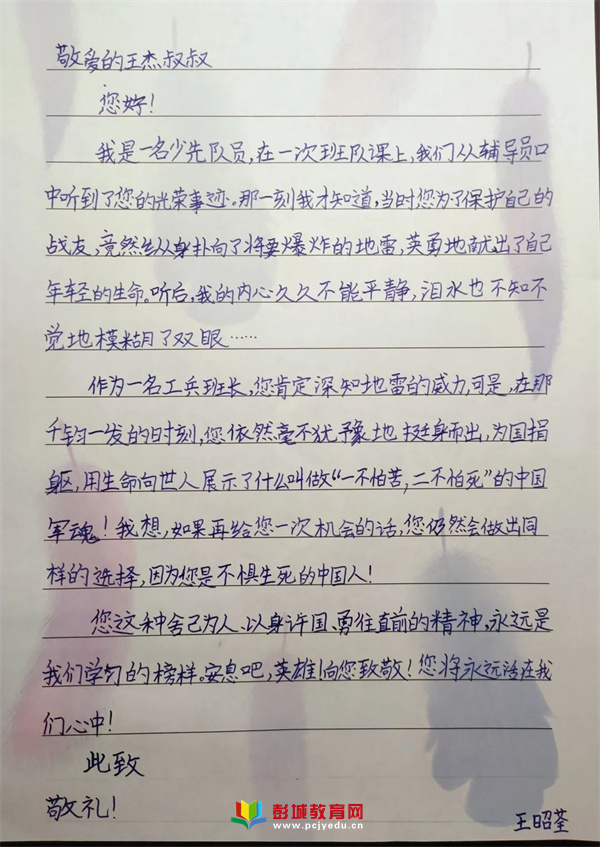 敬爱的王杰叔叔
您好!
我是一名少先队员,在一次班队课上,我们从辅导员口
中听到了您的光荣事迹。那一刻我才知道,当时您为了保护自己的
战友,竟然纵身扑向了将要爆炸的地雷,英勇地献出了自己
年轻的生命。听后,我的内心久久不能平静,泪水也不知不
觉地模糊了双眼……
作为一名工兵班长,您肯定深知地雷的威力,可是,在那
千钧一发的时刻,您依然毫不犹豫地挺身而出,为国捐
躯,用生命向世人展示了什么叫做“一不怕苦,二不怕死”的中国
军魂!我想,如果再给您一次机会的话,您仍然会做出同
样的选择,因为您是不惧生死的中国人!
您这种舍己为人、以身许国、勇往直前的精神,永远是
我们学习的榜样。安息吧,英雄!向您致敬!您将永远活在我
们心中!
此致
敬礼!
彭城教育网
www.pcjyedu.cn
王昭荃